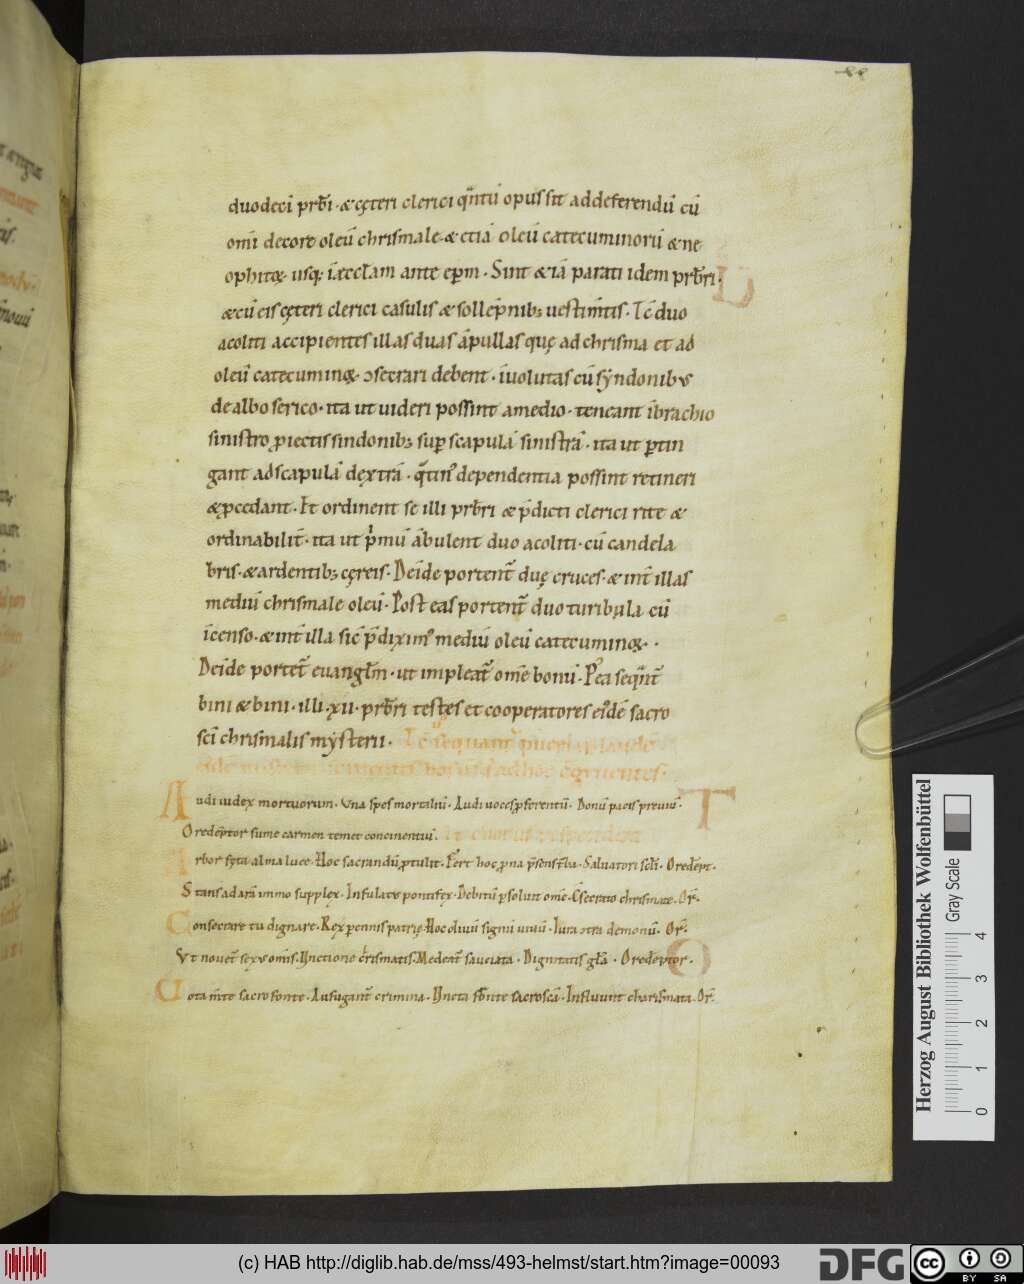 88
duodeci prb̄ri · & cęteri clerici qn̄tū opus sit ad deferendū cū
omī decore oleū chrismale · & etiā oleū catecuminorū & ne
ophitoꝝ · usq; ī ęccl̄am ante cp̄m · Sint & iā parati idem prb̄ri ·
& cū eis cęteri clerici casulis & sollēpnib; uestim̄tis · Tc̄ duo
acoliti accipientes illas duas āpullas quę ad chrisma et ad
oleū catecuminoꝝ · ꝯsecrari debent · īuolutas cū sẏndonibus
de albo serico · ita ut uideri possint a medio · teneant ī brachio
sinistro ꝓiectis sindonib; suꝑ scapulā sinistrā · ita ut ꝑtin
gant ad scapulā dextrā · q̄tin᷒ dependentia possint retineri
& p̄cedant · Et ordinent se illi prb̄ri & p̄dicti clerici rite &
ordinabilit̄ · ita ut p̍mū ābulent duo acoliti · cū candela
bris · & ardentib; cęreis · Deīde portent̄ duę cruces · & int̄ illas
mediū chrismale oleū · Post eas portent̄ duo turibula cū
īcenso · & int̄ illa sic̄ p̄diximꝰ mediū oleū catecuminoꝝ ·
Deīde portet̄ euangl̄m · ut impleat̄ om̄e bonū · P᷒ea seqn̄t̄
bini & bini · illi · xii · prb̄ri testes et cooperatores eiꝰdē sacro
sc̄i chrismalis mẏsterii · Tc̄ sequant̄ pueri
Audi iudex mortuorum · Una spes mortaliū · Audi uoces ꝓferentū · Donū pacis preuiū ·
O redēptor sume carmen temet concinentiū · Et chorus respondeat
Arbor fęta alma luce · Hoc sacrandū ꝓtulit · Fert hoc ꝓna p̄sens t̄ba · Saluatori scl̄i · O redēpt ·
Stans ad arā immo supplex · Infulatꝰ pontifex · Debitū ꝑsoluit om̄e · C̄secrato chrismate · Or̄ ·
Consecrare tu dignare · Rex ꝑennis patrię · Hoc oliuū signū uiuū · Iura ꝯtra demonū · Or̄ ·
Ut nouet̄ sexus omīs · Unctione c̄rismatis · Medeat̄ sauciata · Dignitatis gl̄a · O redēptor ·
Lota m̄te sacro fonte · Aufugant̄ crimina · Uncta fr̄onte sacroscā · Influunt charismata · Or̄ ·
Herzog August Bibliothek Wolfenbüttel
Gray Scale
0 1 2 3 4
(c) HAB http://diglib.hab.de/mss/493-helmst/start.htm?image=00093
DFG
cc BY SA